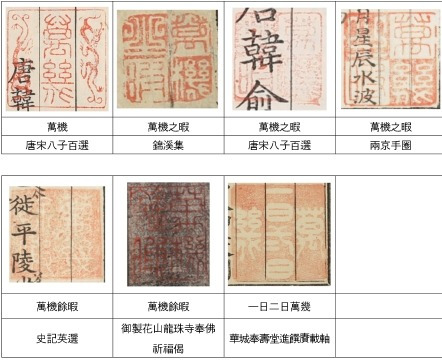 唐韓
韓
月星辰水波
萬機 萬機之暇 萬機之暇 萬機之暇
唐宋八子百選 錦溪集 唐宋八子百選 兩京手圈
徙平陵
萬機餘暇 萬機餘暇 一日二日萬幾
史記英選 御製花山龍珠寺奉佛 華城奉壽堂進饌賡載軸
祈福偈